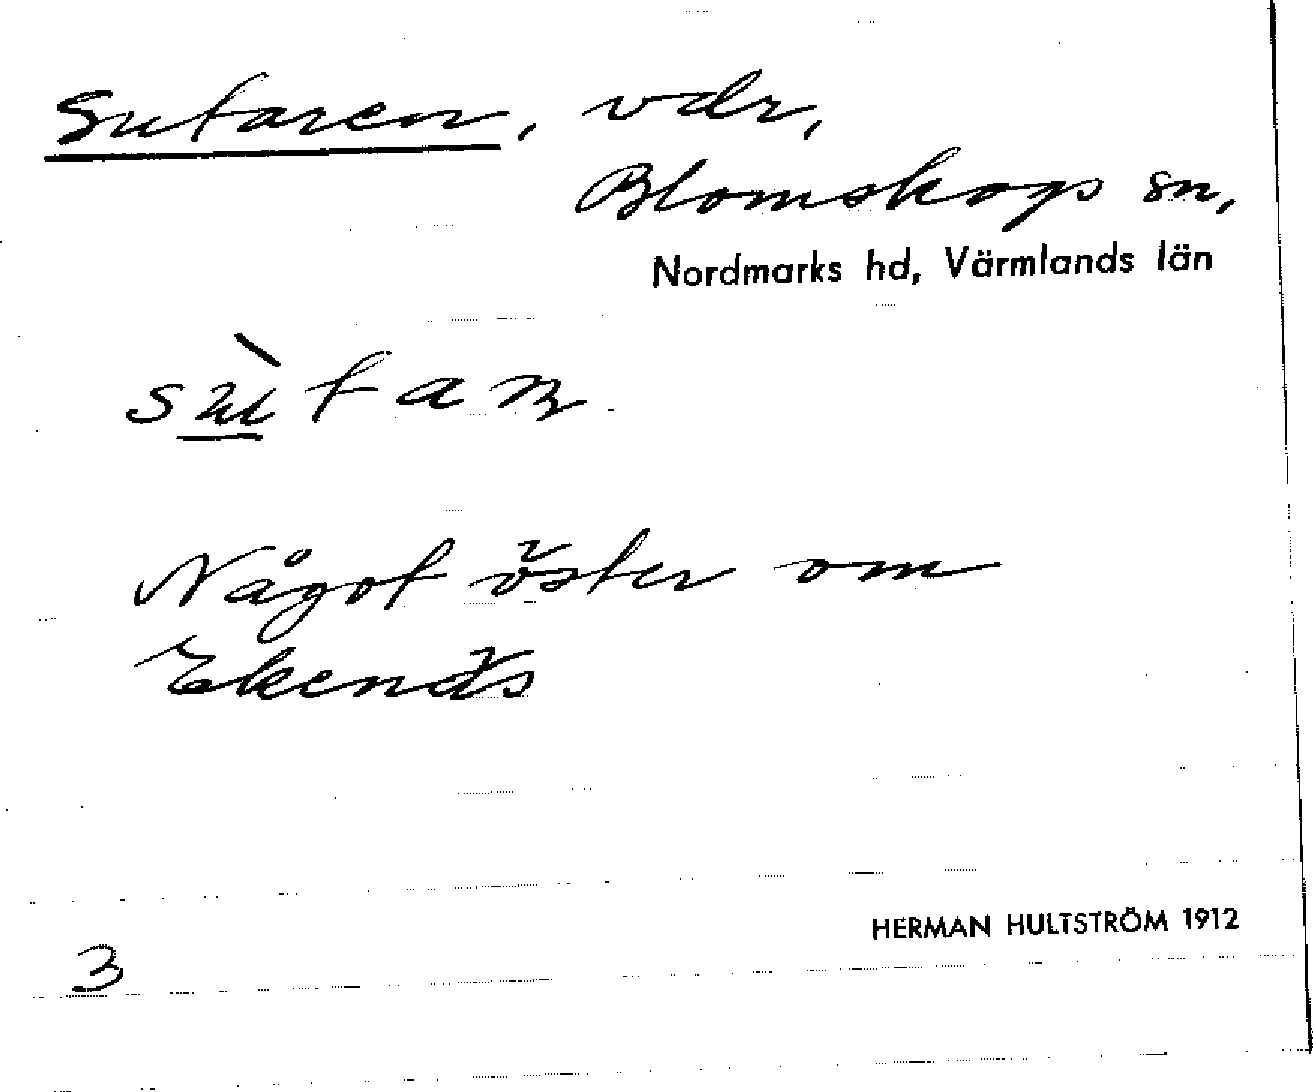 Sutaren, vdr,
Blomskogs sn,
Nordmarks hd, Värmlands län
sùtaʀ
Något öster om
Ekenäs
HERMAN HULTSTRÖM 1912
3